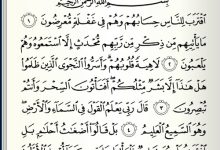 بِسْمِ اللَّهِ الرَّحْمَٰنِ الرَّحِيمِ
ٱقْتَرَبَ لِلنَّاسِ حِسَابُهُمْ وَهُمْ فِي غَفْلَةٍ مُّعْرِضُونَ ١
مَا يَأْتِيهِم مِّن ذِكْرٍ مِّن رَّبِّهِم مُّحْدَثٍ إِلَّا ٱسْتَمَعُوهُ وَهُمْ
يَلْعَبُونَ ٢ لَاهِيَةً قُلُوبُهُمْ وَأَسَرُّوا۟ ٱلنَّجْوَى ٱلَّذِينَ ظَلَمُوا۟
هَلْ هَٰذَا إِلَّا بَشَرٌ مِّثْلُكُمْ أَفَتَأْتُونَ ٱلسِّحْرَ وَأَنتُمْ
تُبْصِرُونَ ٣ قَالَ رَبِّي يَعْلَمُ ٱلْقَوْلَ فِي ٱلسَّمَآءِ وَٱلْأَرْضِ
وَهُوَ ٱلسَّمِيعُ ٱلْعَلِيمُ ٤ بَلْ قَالُوٓا۟ أَضْغَٰثُ أَحْلَٰمٍ بَلِ